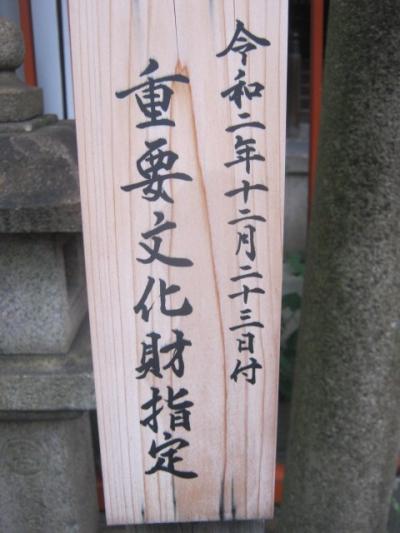 令和二年十二月二十三日付
重要文化財指定